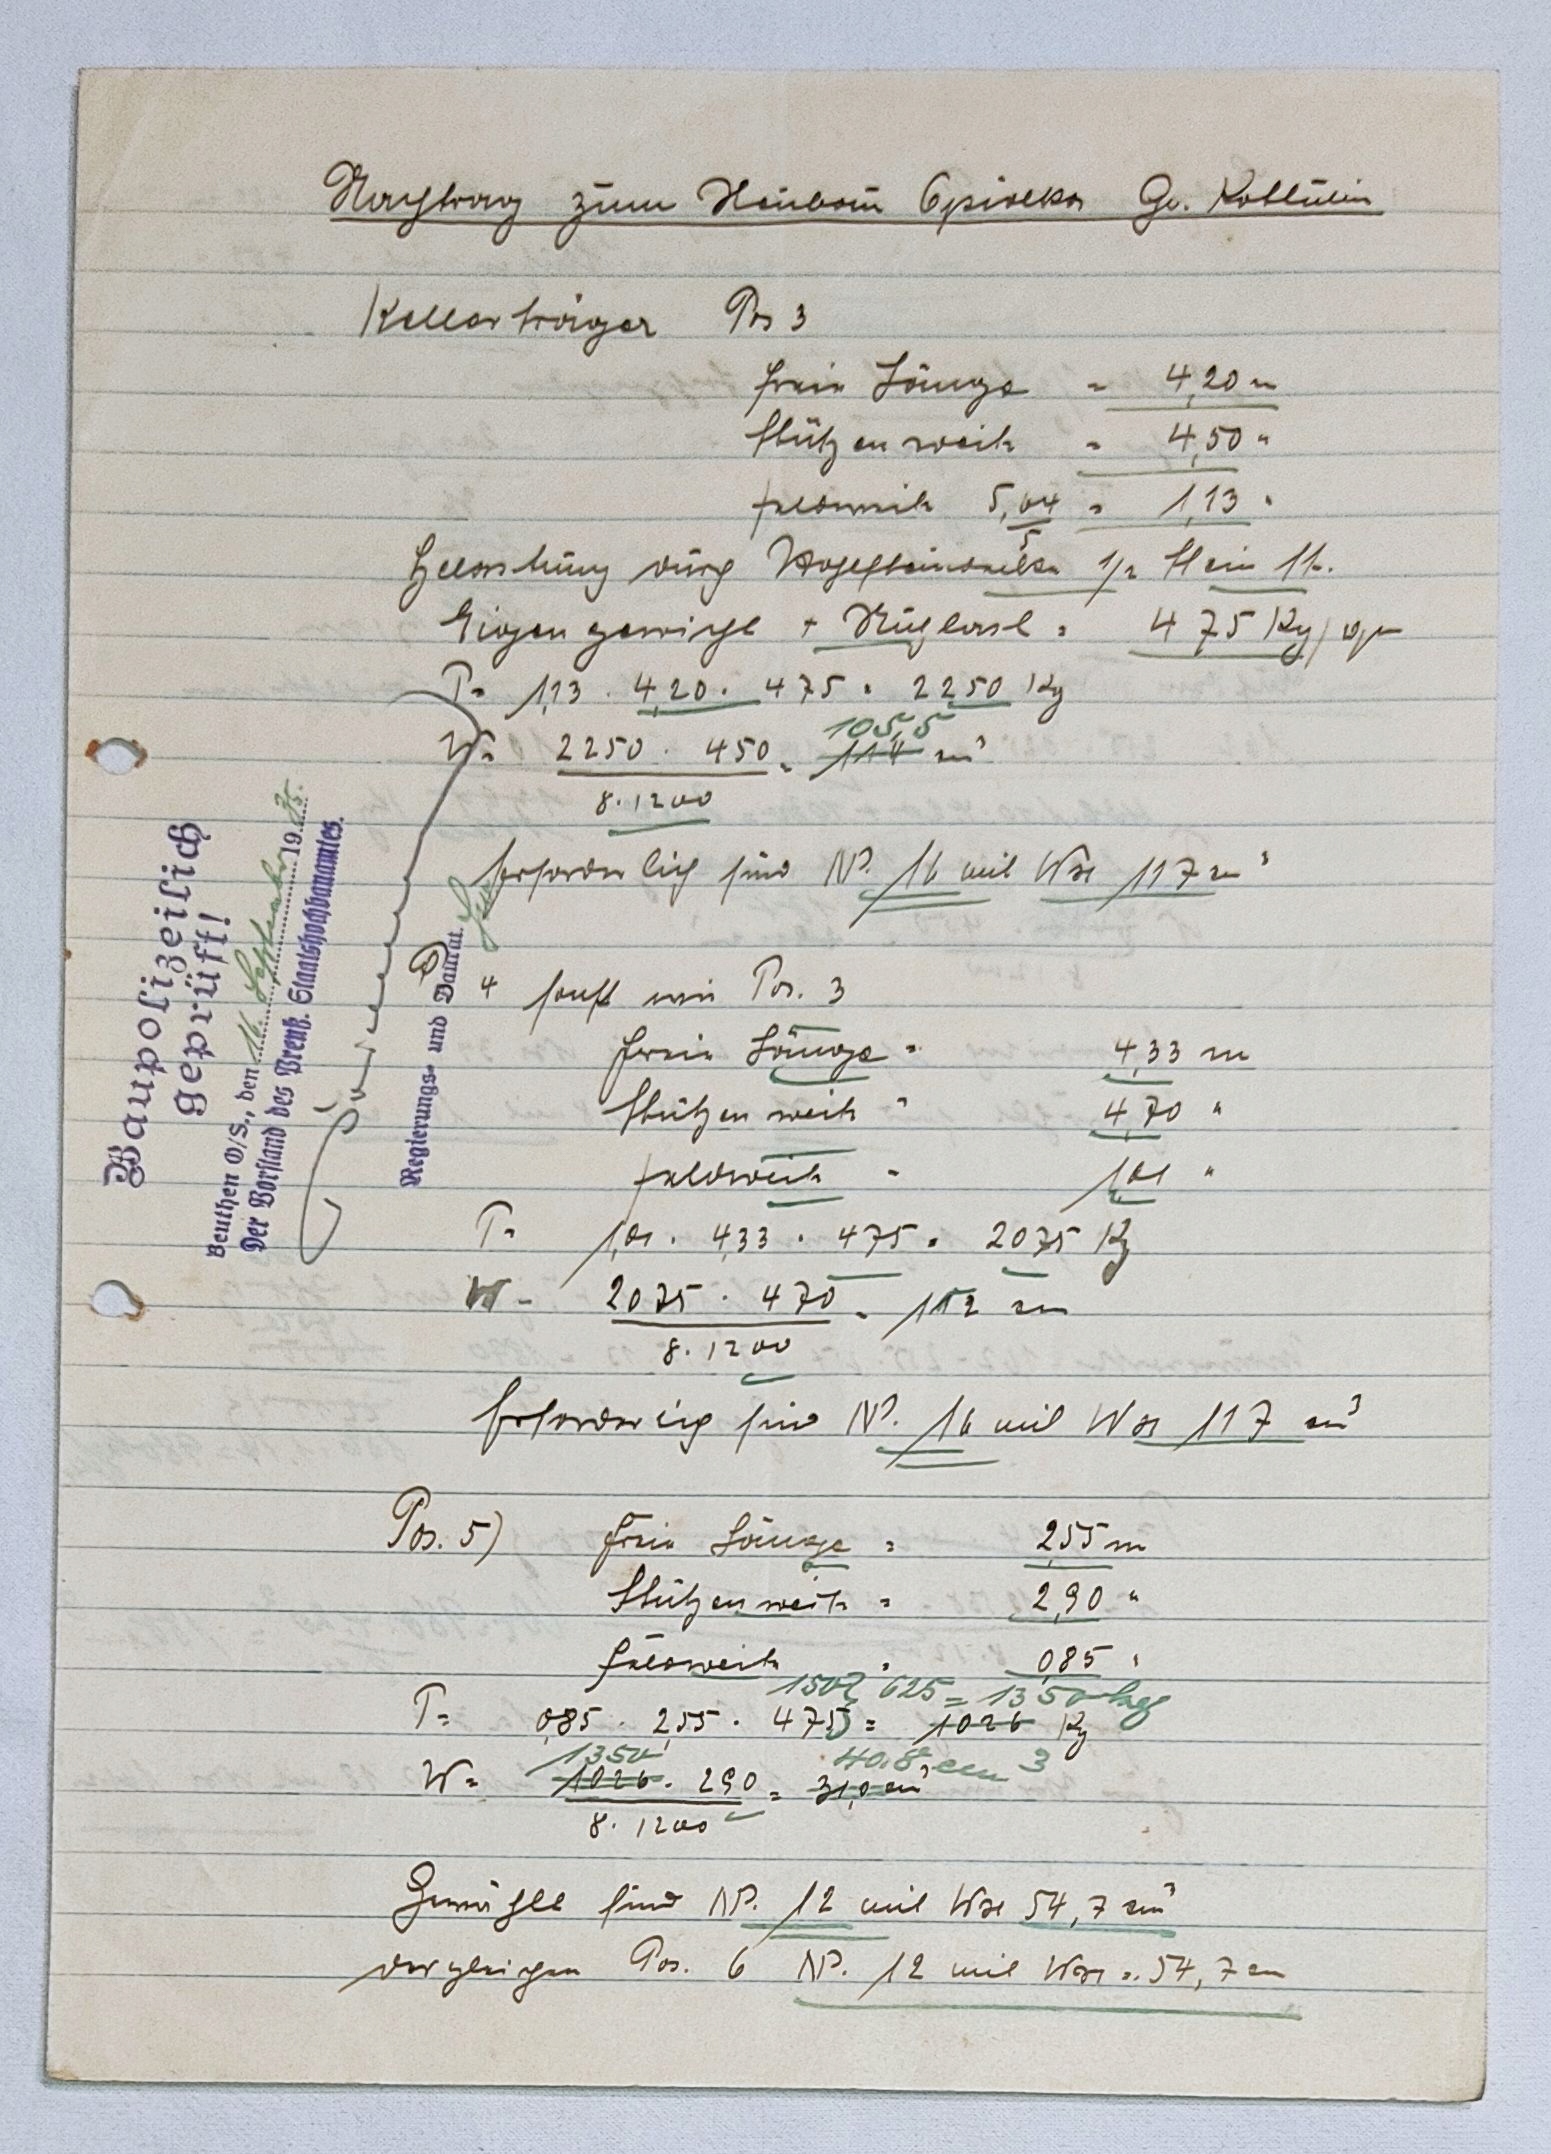 Nachtrag zum Neubau Opielka Gr. Kottulin
Kellerträger Pos 3
freie Länge = 4,20 m
Stützenweite = 4,50 "
Feldweite 5,64/5 = 1,13 "
Belastung durch Hohlsteindecke 1/2 Stein St.
Eigengewicht + Nutzlast = 475 Kg/qm
P= 1,13 . 4,20 . 475 = 2250 Kg
105,5
W= 2250 . 450 / 8.1200 = 114 cm³
Erforderlich sind NP. 16 mit Wx 117 cm³
4 sonst wie Pos. 3
freie Länge = 4,33 m
Stützenweite " 4,70 "
Feldweite " 1,01 "
P= 1,01 . 4,33 . 475 = 2075 Kg
W= 2075 . 470 / 8.1200 = 112 cm
Erforderlich sind NP. 16 mit Wx 117 cm³
Pos. 5) freie Länge = 2,55 m
Stützenweite = 2,90 "
Feldweite " 0,85 "
625 = 1350 kg
P= 0,85 . 2,55 . 475 = 1026 Kg
1350 40.8 cm³
W= 1026 . 290 / 8.1200 = 31,0 cm³
Gewählt sind NP. 12 mit Wx 54,7 cm³
dergleichen Pos. 6 NP. 12 mit Wx = 54,7 cm
Baupolizeilich
geprüft!
Beuthen O/S., den 16. September 1935.
Der Vorstand des Preuß. Staatshochbauamtes.
Regierungs- und Baurat.